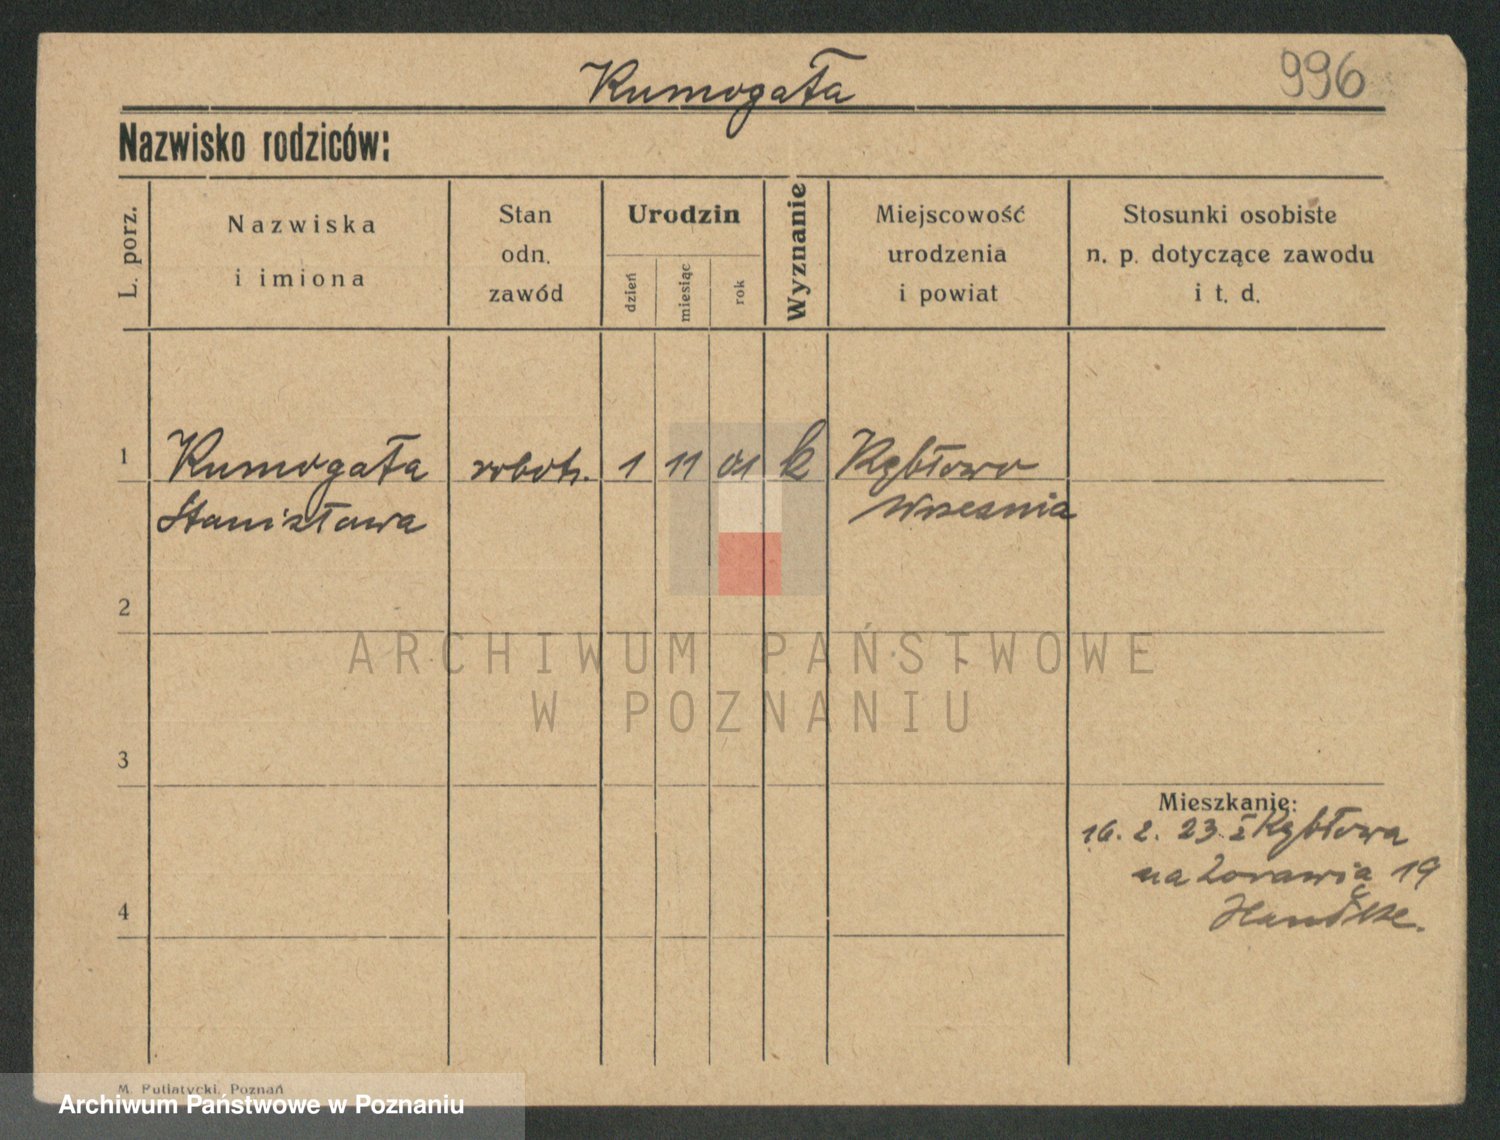 Kumogała
996
Nazwisko rodziców:
L. porz.
Nazwiska
i imiona
Stan
odn.
zawód
Urodzin
dzień
miesiąc
rok
Wyznanie
Miejscowość
urodzenia
i powiat
Stosunki osobiste
n. p. dotyczące zawodu
i t. d.
1 Kumogała robotn. 1 11 01 k Kębłowo
Stanisława Września
2
ARCHIWUM PAŃSTWOWE
W POZNANIU
3
Mieszkanie:
16. 2. 23. z Kębłowa
na Żorawia 19
4
M. Putiatycki, Poznań
Archiwum Państwowe w Poznaniu